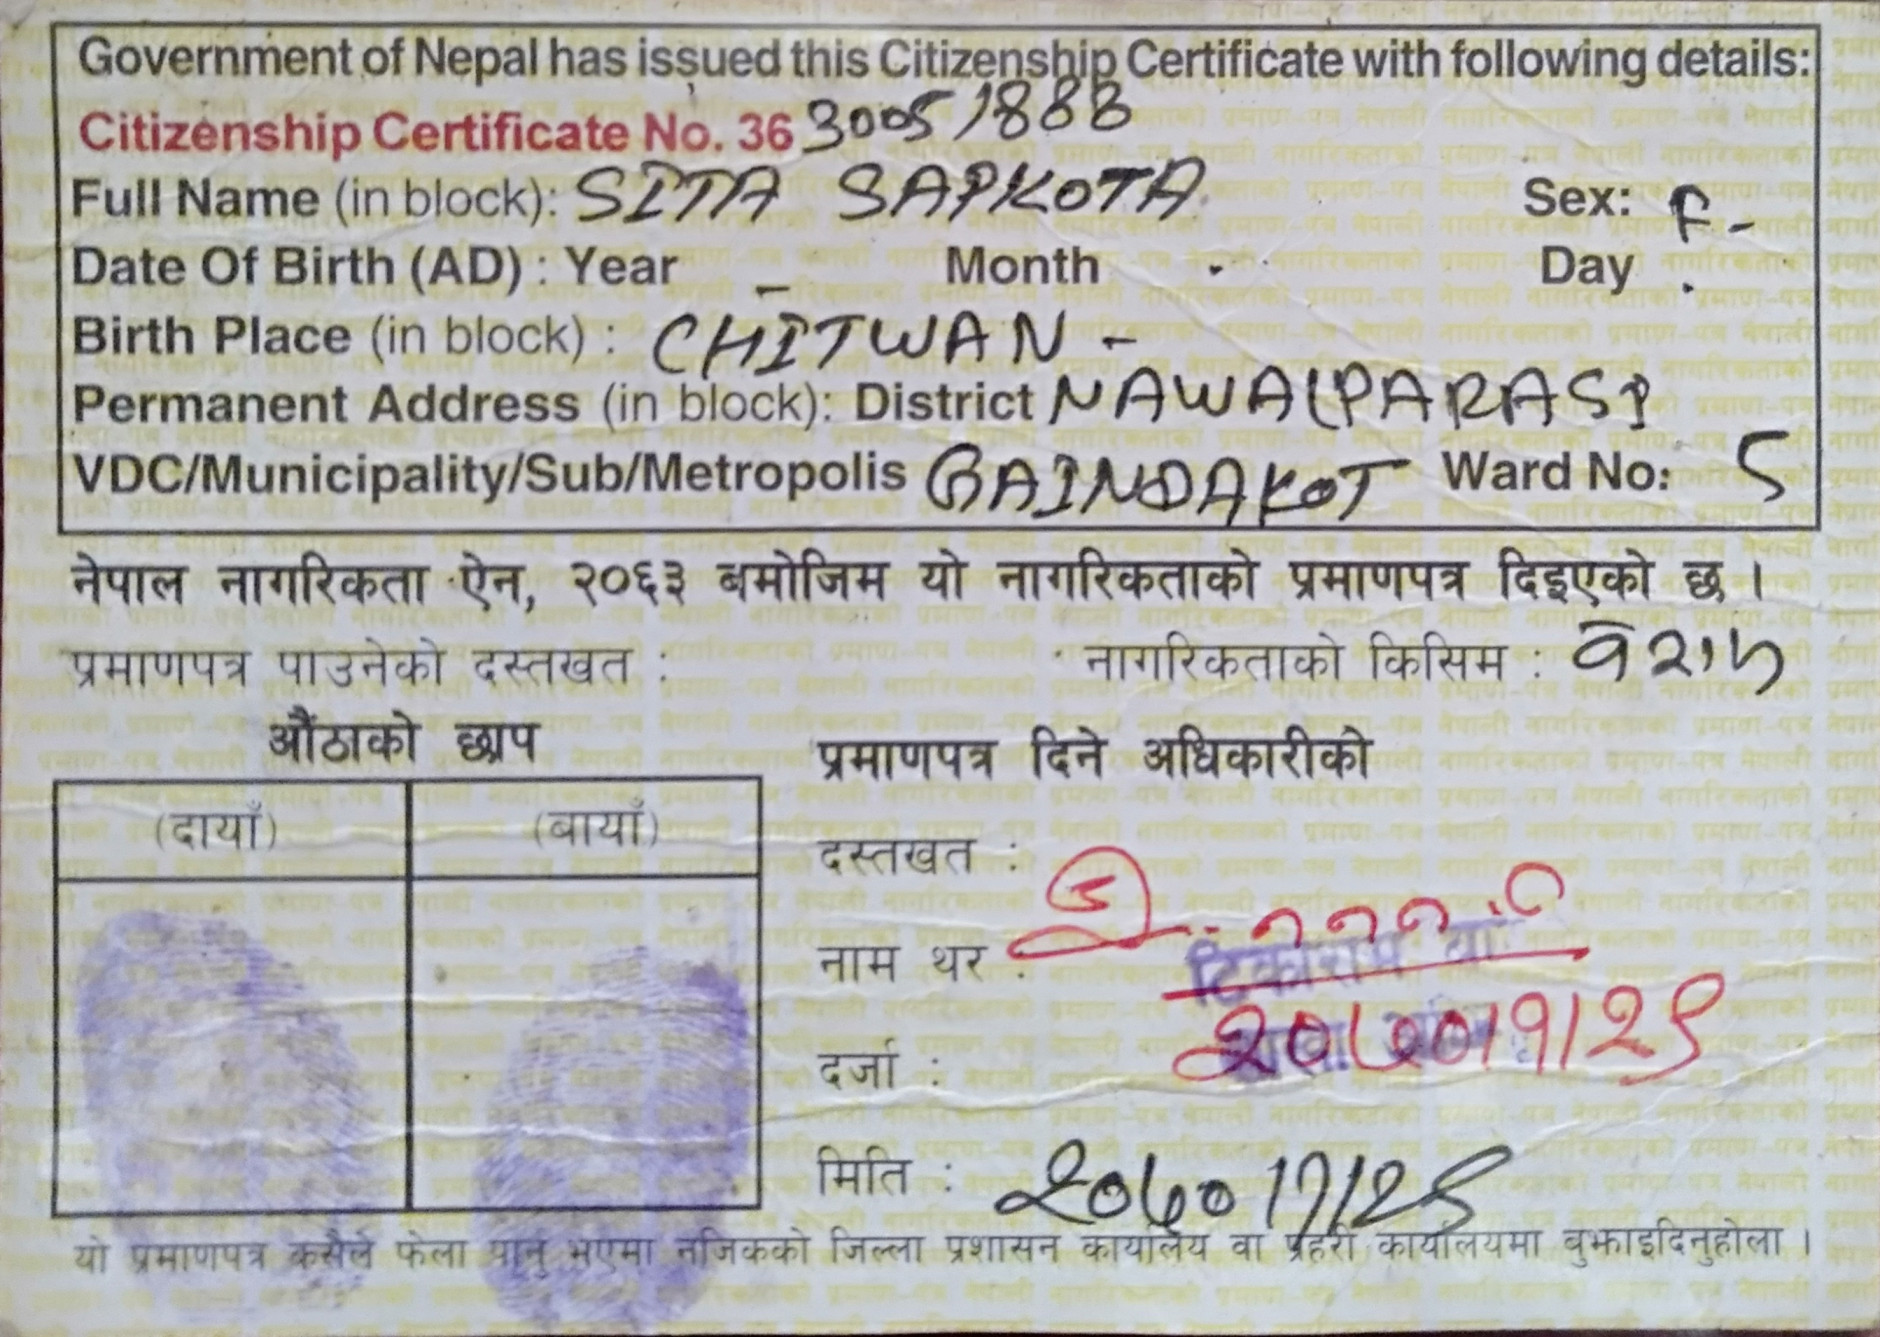 Government of Nepal has issued this Citizenship Certificate with following details:
Citizenship Certificate No. 36 3005/888
Full Name (in block): SITA SAPKOTA Sex: F-
Date Of Birth (AD) : Year - Month . Day .
Birth Place (in block) : CHITWAN -
Permanent Address (in block): District NAWALPARASI
VDC/Municipality/Sub/Metropolis GAINDAKOT Ward No: 5
नेपाल नागरिकता ऐन, २०६३ बमोजिम यो नागरिकताको प्रमाणपत्र दिइएको छ ।
प्रमाणपत्र पाउनेको दस्तखत : नागरिकताको किसिम : वंशज
औंठाको छाप
(दायाँ) (बायाँ)
प्रमाणपत्र दिने अधिकारीको
दस्तखत :
नाम थर : टिकाराम
दर्जा : २०७०।१।२९
मिति : २०७०।१।२९
यो प्रमाणपत्र कसैले फेला पार्नु भएमा नजिकको जिल्ला प्रशासन कार्यालय वा प्रहरी कार्यालयमा बुझाइदिनुहोला ।